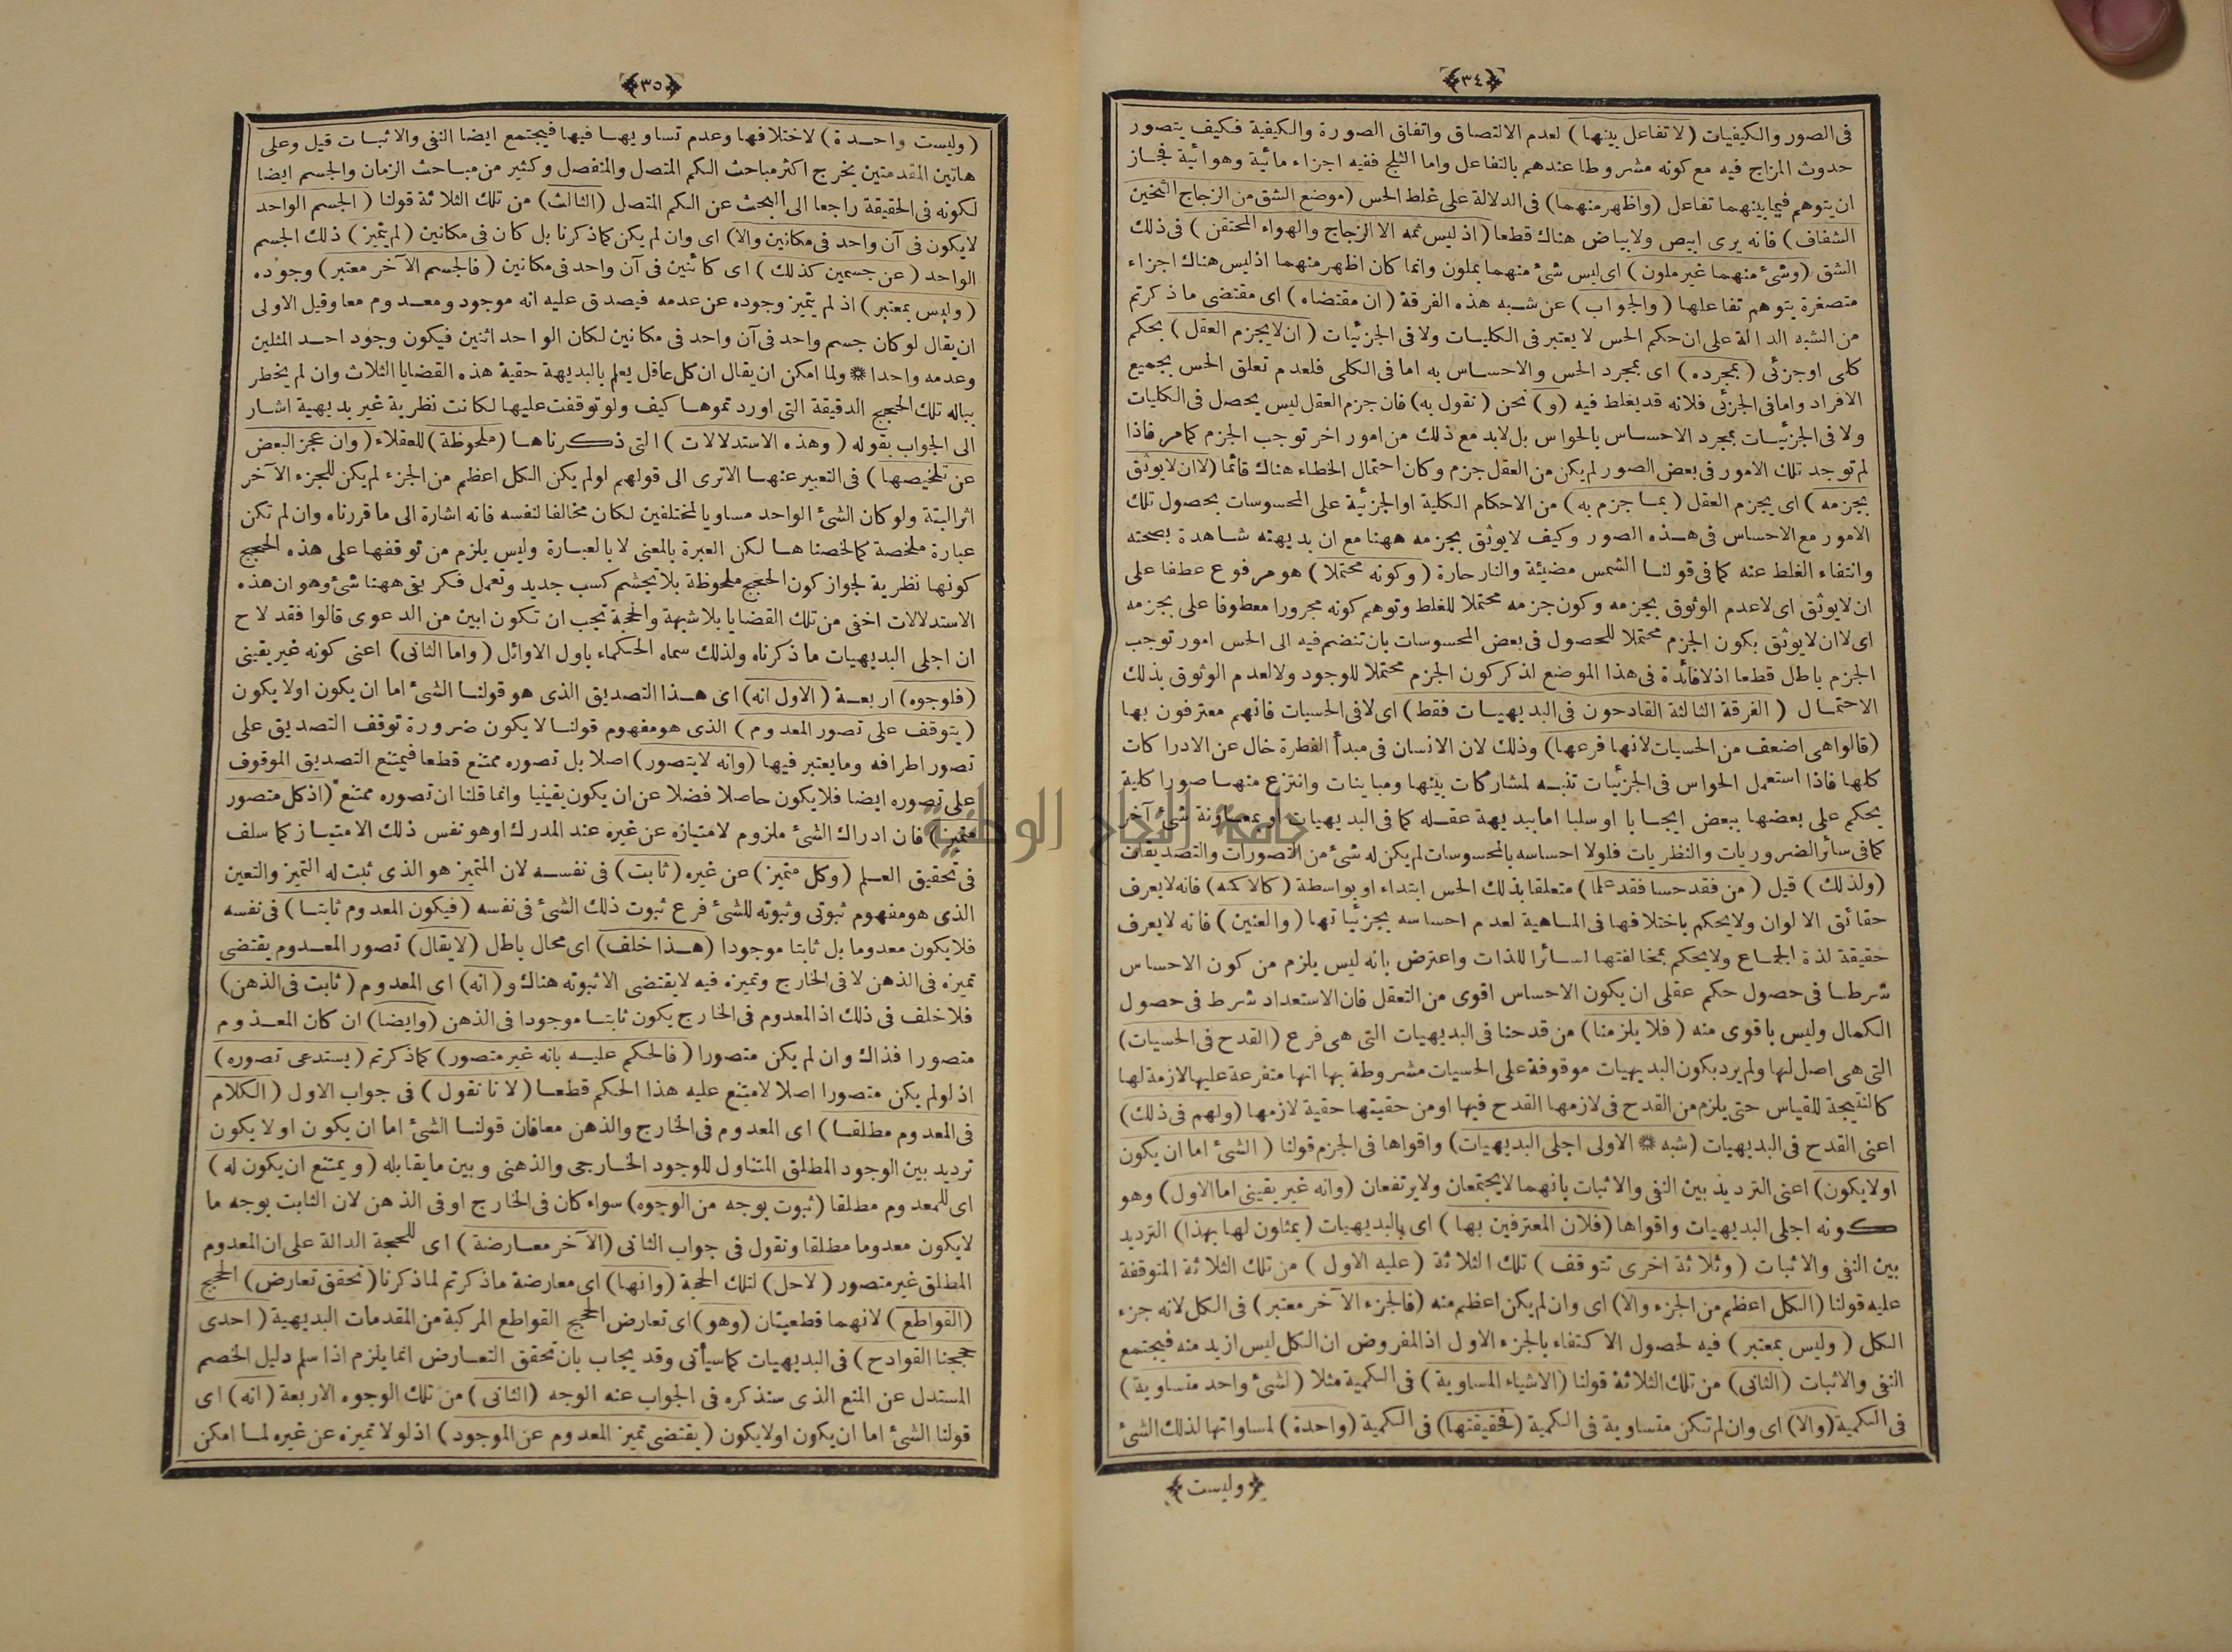 ﴿٣٤﴾
فى الصور والكيفيات (لا تفاعل بينها) لعدم الالتصاق واتفاق الصورة والكيفية فكيف يتصور
حدوث المزاج فيه مع كونه مشروطا عندهم بالتفاعل واما الثلج ففيه اجزاء مائية وهوائية فجاز
ان يتوهم فيما بينهما تفاعل (واظهر منهما) فى الدلالة على غلط الحس (موضع الشق من الزجاج الثخين
الشفاف) فانه يرى ابيض ولا بياض هناك قطعا (اذ ليس ثمه الا الزجاج والهواء المحتقن) فى ذلك
الشق (وشئ منهما غير ملون) اى ليس شئ منهما بملون وانما كان اظهر منهما اذ ليس هناك اجزاء
متصغرة يتوهم تفاعلها (والجواب) عن شبه هذه الفرقة (ان مقتضاه) اى مقتضى ما ذكرتم
من الشبه الدالة على ان حكم الحس لا يعتبر فى الكليات ولا فى الجزئيات (ان لا يجزم العقل) بحكم
كلى او جزئى (بمجرده) اى بمجرد الحس والاحساس به اما فى الكلى فلعدم تعلق الحس بجميع
الافراد واما فى الجزئى فلانه قد يغلط فيه (و) نحن (نقول به) فان جزم العقل ليس يحصل فى الكليات
ولا فى الجزئيات بمجرد الاحساس بالحواس بل لابد مع ذلك من امور اخر توجب الجزم كما مر فاذا
لم توجد تلك الامور فى بعض الصور لم يكن من العقل جزم وكان احتمال الخطاء هناك قائما (لا ان لا يوثق
بجزمه) اى بجزم العقل (بما جزم به) من الاحكام الكلية او الجزئية على المحسوسات بحصول تلك
الامور مع الاحساس فى هذه الصور وكيف لا يوثق بجزمه ههنا مع ان بديهته شاهدة بصحته
وانتفاء الغلط عنه كما فى قولنا الشمس مضيئة والنار حارة (وكونه محتملا) هو مرفوع عطفا على
ان لا يوثق اى لا عدم الوثوق بجزمه وكون جزمه محتملا للغلط وتوهم كونه مجرورا معطوفا على بجزمه
اى لا ان لا يوثق بكون الجزم محتملا للحصول فى بعض المحسوسات بان تنضم فيه الى الحس امور توجب
الجزم باطل قطعا اذ لا فائدة فى هذا الموضع لذكر كون الجزم محتملا للوجود ولا لعدم الوثوق بذلك
الاحتمال (الفرقة الثالثة القادحون فى البديهيات فقط) اى لا فى الحسيات فانهم معترفون بها
(قالوا هى اضعف من الحسيات لانها فرعها) وذلك لان الانسان فى مبدأ الفطرة خال عن الادراكات
كلها فاذا استعمل الحواس فى الجزئيات تنبه لمشاركات بينها ومباينات وانتزع منها صورا كلية
يحكم على بعضها ببعض ايجابا او سلبا اما ببديهة عقله كما فى البديهيات او بمعاونة شئ آخر
كما فى سائر الضروريات والنظريات فلولا احساسه بالمحسوسات لم يكن له شئ من التصورات والتصديقات
(ولذلك) قيل (من فقد حسا فقد علما) متعلقا بذلك الحس ابتداء او بواسطة (كالاكمه) فانه لا يعرف
حقائق الالوان ولا يحكم باختلافها فى الماهية لعدم احساسه بجزئياتها (والعنين) فانه لا يعرف
حقيقة لذة الجماع ولا يحكم بمخالفتها لسائر اللذات واعترض بانه ليس يلزم من كون الاحساس
شرطا فى حصول حكم عقلى ان يكون الاحساس اقوى من التعقل فان الاستعداد شرط فى حصول
الكمال وليس باقوى منه (فلا يلزمنا) من قدحنا فى البديهيات التى هى فرع (القدح فى الحسيات)
التى هى اصل لها ولم يرد بكون البديهيات موقوفة على الحسيات مشروطة بها انها متفرعة عليها لازمة لها
كالنتيجة للقياس حتى يلزم من القدح فى لازمها القدح فيها او من حقيتها حقية لازمها (ولهم فى ذلك)
اعنى القدح فى البديهيات (شبه * الاولى اجلى البديهيات) واقواها فى الجزم قولنا (الشئ اما ان يكون
اولا يكون) اعنى الترديد بين النفى والاثبات بانهما لا يجتمعان ولا يرتفعان (وانه غير يقينى اما الاول) وهو
كونه اجلى البديهيات واقواها (فلان المعترفين بها) اى بالبديهيات (يمثلون لها بهذا) الترديد
بين النفى والاثبات (وثلاثة اخرى تتوقف) تلك الثلاثة (عليه الاول) من تلك الثلاثة المتوقفة
عليه قولنا (الكل اعظم من الجزء والا) اى وان لم يكن اعظم منه (فالجزء الآخر معتبر) فى الكل لانه جزء
الكل (وليس بمعتبر) فيه لحصول الاكتفاء بالجزء الاول اذ المفروض ان الكل ليس ازيد منه فيجتمع
النفى والاثبات (الثانى) من تلك الثلاثة قولنا (الاشياء المساوية) فى الكمية مثلا (لشئ واحد متساوية)
فى الكمية (والا) اى وان لم تكن متساوية فى الكمية (فحقيقتها) فى الكمية (واحدة) لمساواتها لذلك الشئ
﴿وليست﴾
﴿٣٥﴾
(وليست واحدة) لاختلافها وعدم تساويها فيها فيجتمع ايضا النفى والاثبات قيل وعلى
هاتين المقدمتين يخرج اكثر مباحث الكم المتصل والمنفصل وكثير من مباحث الزمان والجسم ايضا
لكونه فى الحقيقة راجعا الى البحث عن الكم المتصل (الثالث) من تلك الثلاثة قولنا (الجسم الواحد
لا يكون فى آن واحد فى مكانين والا) اى وان لم يكن كما ذكرنا بل كان فى مكانين (لم يتميز) ذلك الجسم
الواحد (عن جسمين كذلك) اى كائنين فى آن واحد فى مكانين (فالجسم الآخر معتبر) وجوده
(وليس بمعتبر) اذ لم يتميز وجوده عن عدمه فيصدق عليه انه موجود ومعدوم معا وقيل الاولى
ان يقال لو كان جسم واحد فى آن واحد فى مكانين لكان الواحد اثنين فيكون وجود احد المثلين
وعدمه واحدا * ولما امكن ان يقال ان كل عاقل يعلم بالبديهة حقية هذه القضايا الثلاث وان لم يخطر
بباله تلك الحجج الدقيقة التى اوردتموها كيف ولو توقفت عليها لكانت نظرية غير بديهية اشار
الى الجواب بقوله (وهذه الاستدلالات) التى ذكرناها (ملحوظة) للعقلاء (وان عجز البعض
عن تلخيصها) فى التعبير عنها الا ترى الى قولهم لو لم يكن الكل اعظم من الجزء لم يكن للجزء الآخر
اثر البتة ولو كان الشئ الواحد مساويا لمختلفين لكان مخالفا لنفسه فانه اشارة الى ما قررناه وان لم تكن
عبارة ملخصة كما لخصناها لكن العبرة بالمعنى لا بالعبارة وليس يلزم من توقفها على هذه الحجج
كونها نظرية لجواز كون الحجج ملحوظة بلا تجشم كسب جديد وتعمل فكر بقى ههنا شئ وهو ان هذه
الاستدلالات اخفى من تلك القضايا بلا شبهة والحجة تجب ان تكون ابين من الدعوى قالوا فقد لاح
ان اجلى البديهيات ما ذكرناه ولذلك سماه الحكماء باول الاوائل (واما الثانى) اعنى كونه غير يقينى
(فلوجوه) اربعة (الاول انه) اى هذا التصديق الذى هو قولنا الشئ اما ان يكون اولا يكون
(يتوقف على تصور المعدوم) الذى هو مفهوم قولنا لا يكون ضرورة توقف التصديق على
تصور اطرافه وما يعتبر فيها (وانه لا يتصور) اصلا بل تصوره ممتنع قطعا فيمتنع التصديق الموقوف
على تصوره ايضا فلا يكون حاصلا فضلا عن ان يكون يقينيا وانما قلنا ان تصوره ممتنع (اذ كل متصور
متميز) فان ادراك الشئ ملزوم لامتيازه عن غيره عند المدرك او هو نفس ذلك الامتياز كما سلف
فى تحقيق العلم (وكل متميز) عن غيره (ثابت) فى نفسه لان المتميز هو الذى ثبت له التميز والتعين
الذى هو مفهوم ثبوتى وثبوته للشئ فرع ثبوت ذلك الشئ فى نفسه (فيكون المعدوم ثابتا) فى نفسه
فلا يكون معدوما بل ثابتا موجودا (هذا خلف) اى محال باطل (لا يقال) تصور المعدوم يقتضى
تميزه فى الذهن لا فى الخارج وتميزه فيه لا يقتضى الا ثبوته هناك و (انه) اى المعدوم (ثابت فى الذهن)
فلا خلف فى ذلك اذ المعدوم فى الخارج يكون ثابتا موجودا فى الذهن (وايضا) ان كان المعدوم
متصورا فذاك وان لم يكن متصورا (فالحكم عليه بانه غير متصور) كما ذكرتم (يستدعى تصوره)
اذ لو لم يكن متصورا اصلا لامتنع عليه هذا الحكم قطعا (لانا نقول) فى جواب الاول (الكلام
فى المعدوم مطلقا) اى المعدوم فى الخارج والذهن معا فان قولنا الشئ اما ان يكون اولا يكون
ترديد بين الوجود المطلق المتناول للوجود الخارجى والذهنى وبين ما يقابله (ويمتنع ان يكون له)
اى للمعدوم مطلقا (ثبوت بوجه من الوجوه) سواء كان فى الخارج او فى الذهن لان الثابت بوجه ما
لا يكون معدوما مطلقا ونقول فى جواب الثانى (الآخر معارضة) اى للحجة الدالة على ان المعدوم
المطلق غير متصور (لا حل) لتلك الحجة (وانها) اى معارضة ما ذكرتم لما ذكرنا (تحقق تعارض) الحجج
(القواطع) لانهما قطعيتان (وهو) اى تعارض الحجج القواطع المركبة من المقدمات البديهية (احدى
حججنا القوادح) فى البديهيات كما سيأتى وقد يجاب بان تحقق التعارض انما يلزم اذا سلم دليل الخصم
المستدل عن المنع الذى سنذكره فى الجواب عنه الوجه (الثانى) من تلك الوجوه الاربعة (انه) اى
قولنا الشئ اما ان يكون اولا يكون (يقتضى تميز المعدوم عن الموجود) اذ لولا تميزه عن غيره لما امكن
جامعة النجاح الوطنية